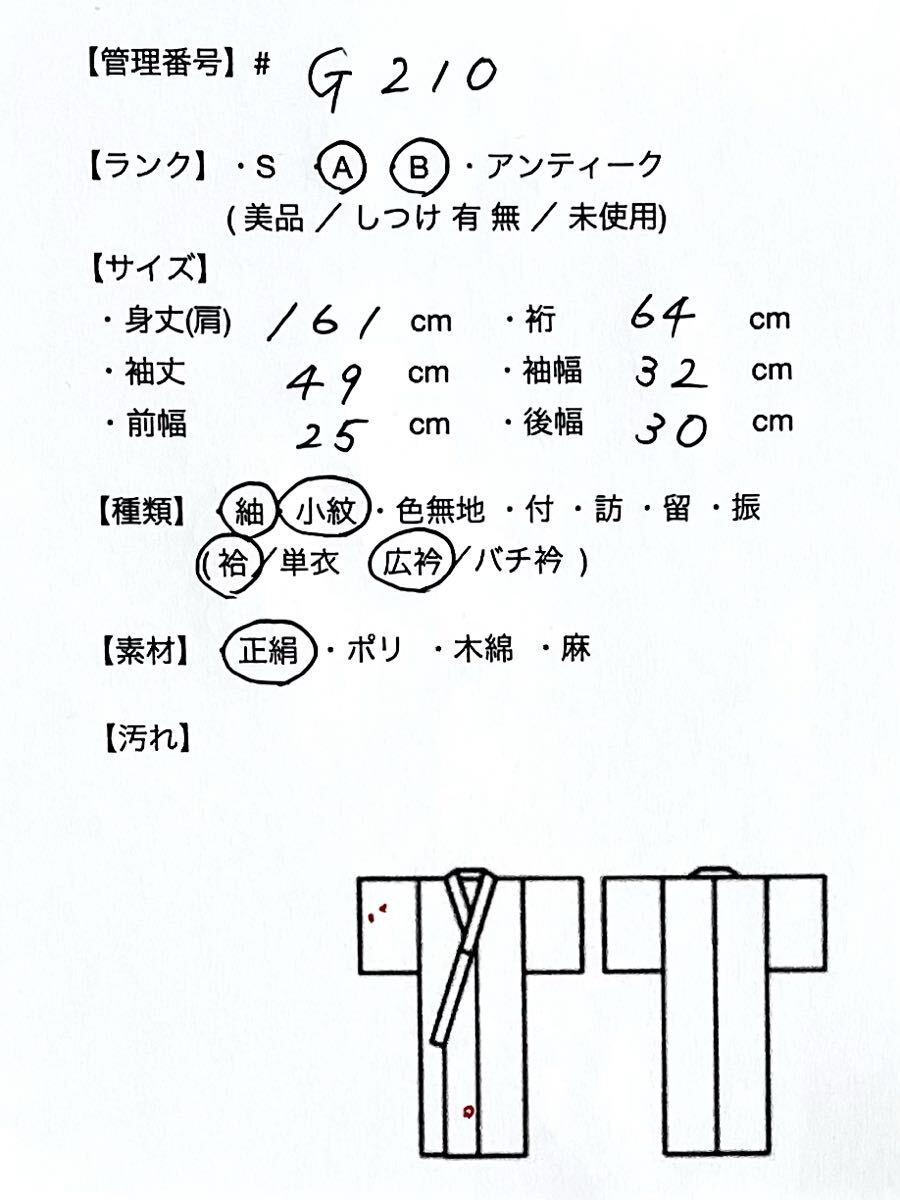 【管理番号】# G210
【ランク】・S ・A ・B ・アンティーク
( 美品 ／ しつけ 有 無 ／ 未使用)
【サイズ】
・身丈(肩) 161 cm ・裄 64 cm
・袖丈 49 cm ・袖幅 32 cm
・前幅 25 cm ・後幅 30 cm
【種類】 ・紬・小紋・色無地 ・付 ・訪 ・留 ・振
( 袷／単衣 広衿／バチ衿 )
【素材】 ・正絹・ポリ ・木綿 ・麻
【汚れ】